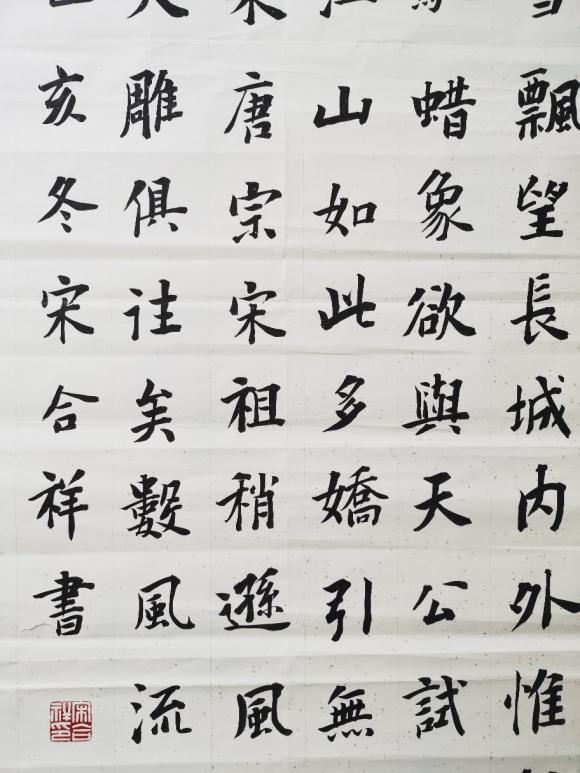 飄望長城内外惟
蜡象欲與天公試
山如此多嬌引無
唐宗宋祖稍遜風
雕俱往矣數風流
亥冬宋合祥書
宋合祥印